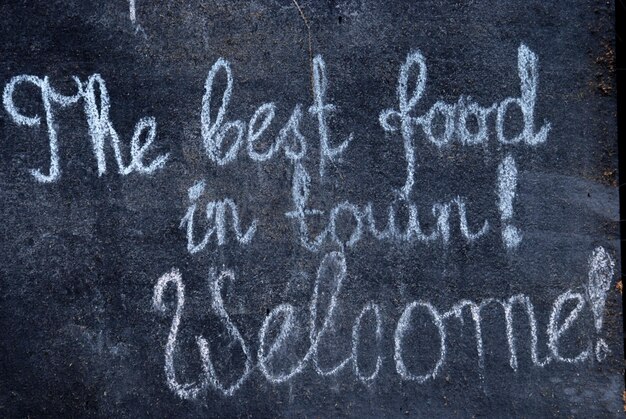 The best food
in town!
Welcome!